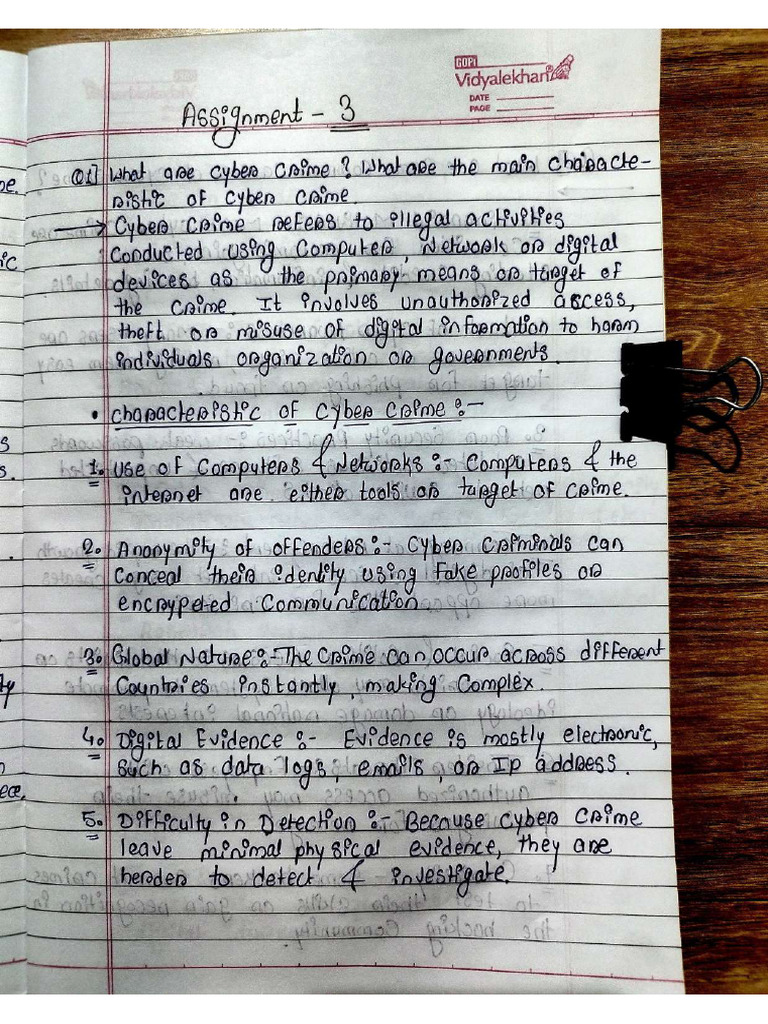 GOPI
Vidyalekhan
DATE
PAGE
Assignment - 3
Q1] What are cyber crime? What are the main characte-
ristic of cyber crime.
→ Cyber crime refers to illegal activities
conducted using computer, networks or digital
devices as the primary means or target of
the crime. It involves unauthorized access,
theft or misuse of digital information to harm
individuals organization or governments.
• characteristic of cyber crime :-
1. Use of Computers & Networks :- Computers & the
internet are either tools or target of crime.
2. Anonymity of offenders :- Cyber criminals can
conceal their identity using fake profiles or
encrypeted communication
3. Global Nature :- The crime can occur across different
countries instantly making complex.
4. Digital Evidence :- Evidence is mostly electronic,
such as data logs, emails, or Ip address.
5. Difficulty in Detection :- Because cyber crime
leave minimal physical evidence, they are
herder to detect & investigate.